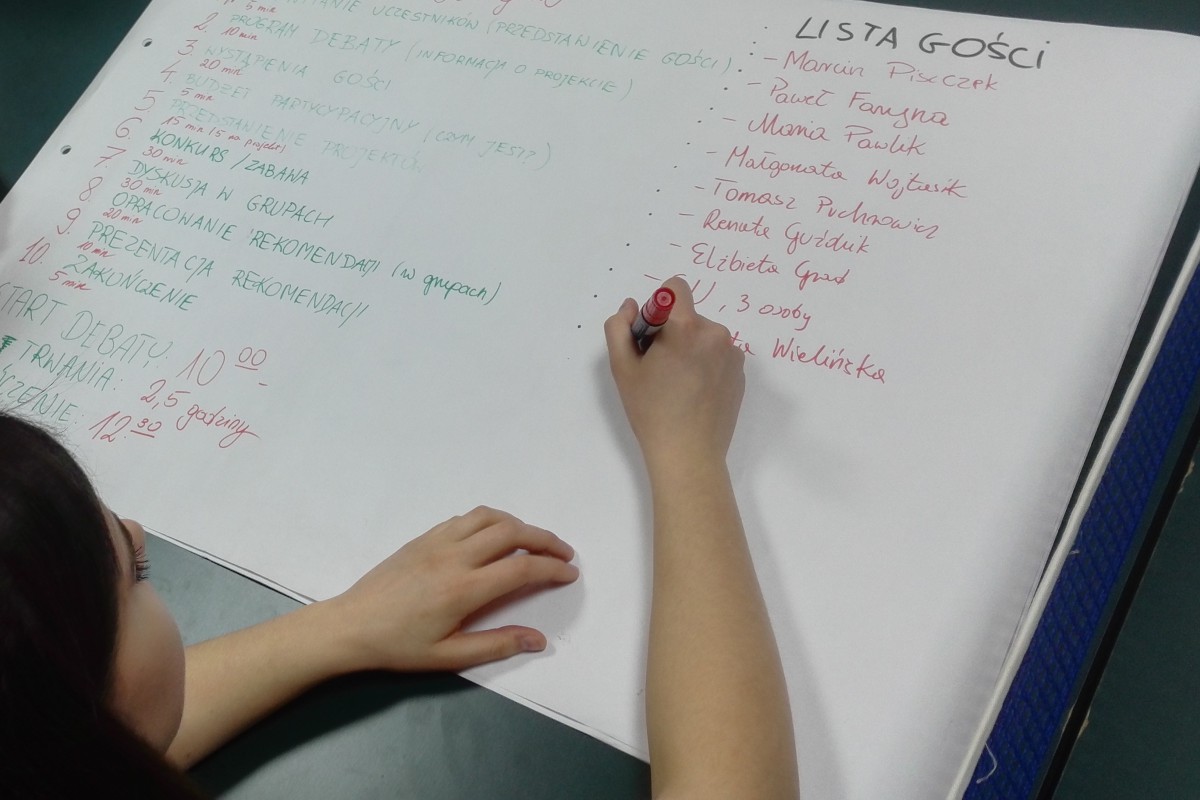 5 min
UCZESTNIKÓW (PRZEDSTAWIENIE GOŚCI)
2. PROGRAM DEBATY (INFORMACJA O PROJEKCIE)
10 min
3. WYSTĄPIENIA GOŚCI
20 min
4. BUDŻET PARTYCYPACYJNY (CZYM JEST?)
5 min
5. PRZEDSTAWIENIE PROJEKTÓW
15 min (5 na projekt)
6. KONKURS / ZABAWA
30 min
7. DYSKUSJA W GRUPACH
30 min
8. OPRACOWANIE REKOMENDACJI (w grupach)
20 min
9. PREZENTACJA REKOMENDACJI
10 min
10. ZAKOŃCZENIE
5 min
START DEBATY: 10 00
TRWANIA: 2,5 godziny
12.30
LISTA GOŚCI
- Marcin Piszczek
- Paweł
- Maria Pawlik
- Małgorzata Wojtasik
- Tomasz Puchrowicz
- Renata Guźduk
- Elżbieta Grad
, 3 osoby
Wielińska